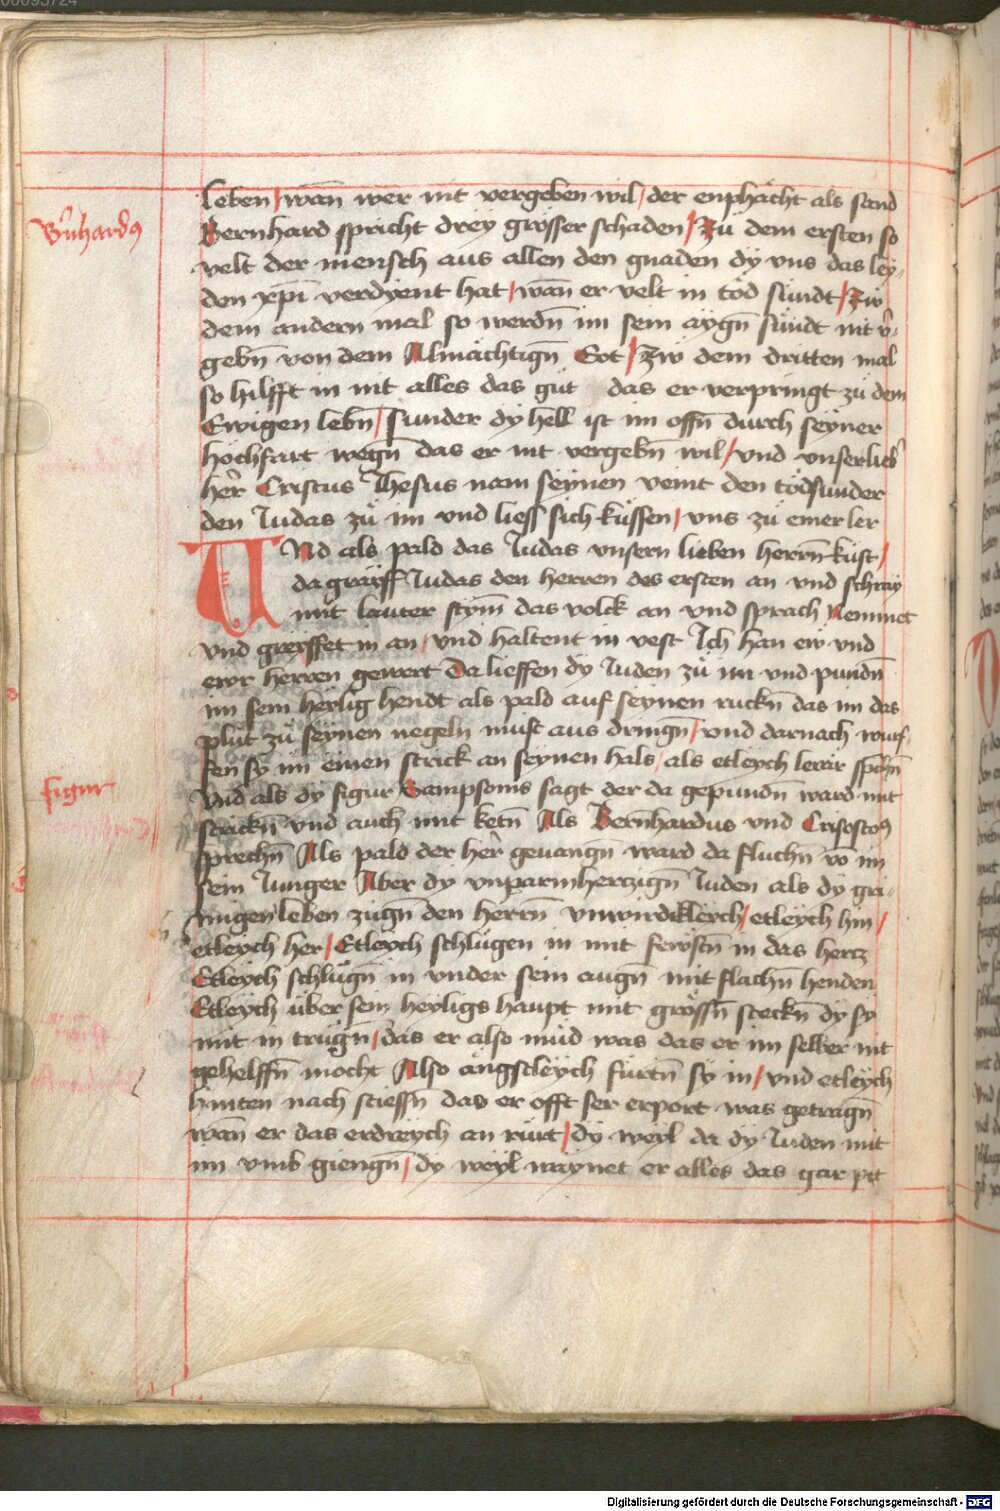 leben / wan̄ wer nit vergeben wil / der enphächt als sand
Bernhard spricht drey grosser schaden / Zů dem ersten so
Bernhardus
velt der mensch aus allen den gnaden dy vns das ley-
den xp̄i verdyent hat / wan̄ er velt in tod sundt / Zw
dem andern mal so werdn̄ im sein aygn̄ sündt nit v̄-
gebn̄ von dem Almächtign̄ Got / Zw dem dritten mal
so hilfft in nit alles das gůt das er verpringt zů dem
Ewigen lebn̄ / sunder dy hell ist im offn̄ durch seyner
hochfart wegn̄ das er nit vergebn̄ wil / vnd vnser lieb̄
her̄ Cristus Jhesus nam seynen veint den todsunder
den Judas zů im vnd liess sich küssen / vns zů einer ler
UNd als pald das Judas vnsern lieben herrn̄ küst /
da grayff Judas den herren des ersten an vnd schray
mit lauter stym̄ das volck an vnd sprach Nemmet
vnd greyffet in an / vnd haltent in vest Ich han ew vnd
ewr herren gewert Da lieffen dy Juden zů im vnd pundn̄
im sein heylig hendt als pald auf seynen ruckn̄ das im das
plut zů seynen negeln must aus dringn̄ / vnd darnach wurf-
fen sy im einen strick an seynen hals / als etleych lerer spchn̄
figur
Vnd als dy figur Sampsonis sagt der da gepundn̄ ward mit
strickn̄ vnd auch mit ketn̄ Als Bern̄hardus vnd Crisostos
sprechn̄ Als pald der her̄ geuangn̄ ward da fluchn̄ vō im
sein Junger Aber dy vnparmherczign̄ Juden als dy gri-
migen leben zugn̄ den herrn̄ vnwirdikleych / etleych hin /
etleych her / Etleych schlůgen in mit fewstn̄ in das hercz
Etleych schlůgn̄ in vnder sein augn̄ mit flachn̄ henden
Etleych über sein heyligs haupt mit grossn̄ steckn̄ dy sy
mit in trůgn̄ / das er also müd was das er im selber nit
gehelffn̄ mocht Also ängstleych fürtn̄ sy in / vnd etleych
hinten nach stiessn̄ das er offt ser erport was getragn̄
wan̄ er das erdreych an rürt / dy weyl da dy Juden mit
im vmb giengn̄ / dy weyl waynet er alles das gar pit
Digitalisierung gefördert durch die Deutsche Forschungsgemeinschaft - DFG